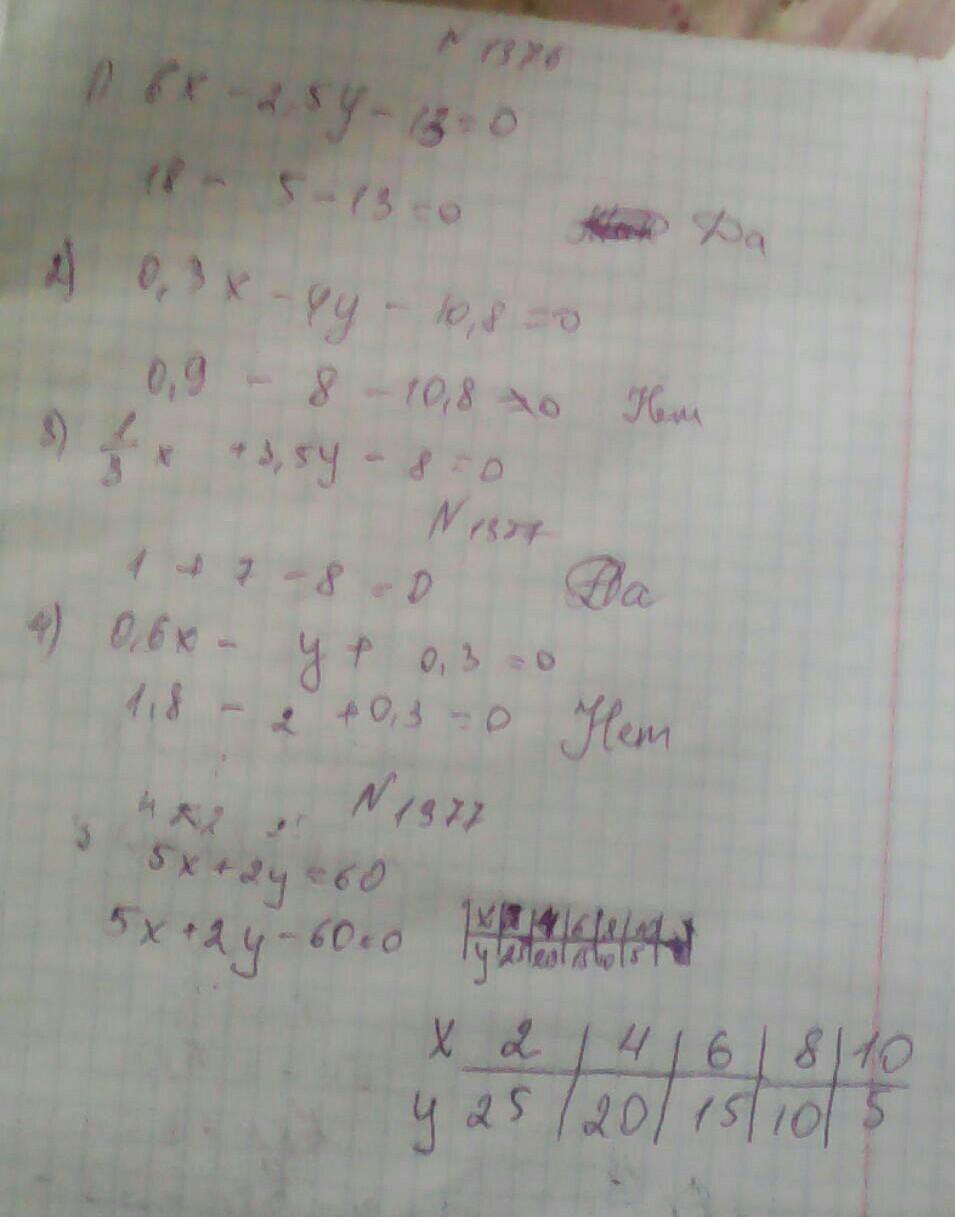 N 1376
1) 6x - 2,5y - 13 = 0
18 - 5 - 13 = 0 Да
2) 0,3x - 4y - 10,8 = 0
0,9 - 8 - 10,8 ≠ 0 Нет
3) 1/3 x + 3,5y - 8 = 0
N 1377
1 + 7 - 8 = 0 Да
4) 0,6x - y + 0,3 = 0
1,8 - 2 + 0,3 = 0 Нет
N 1377
5x + 2y = 60
5x + 2y - 60 = 0
x 2 4 6 8 10
y 25 20 15 10 5